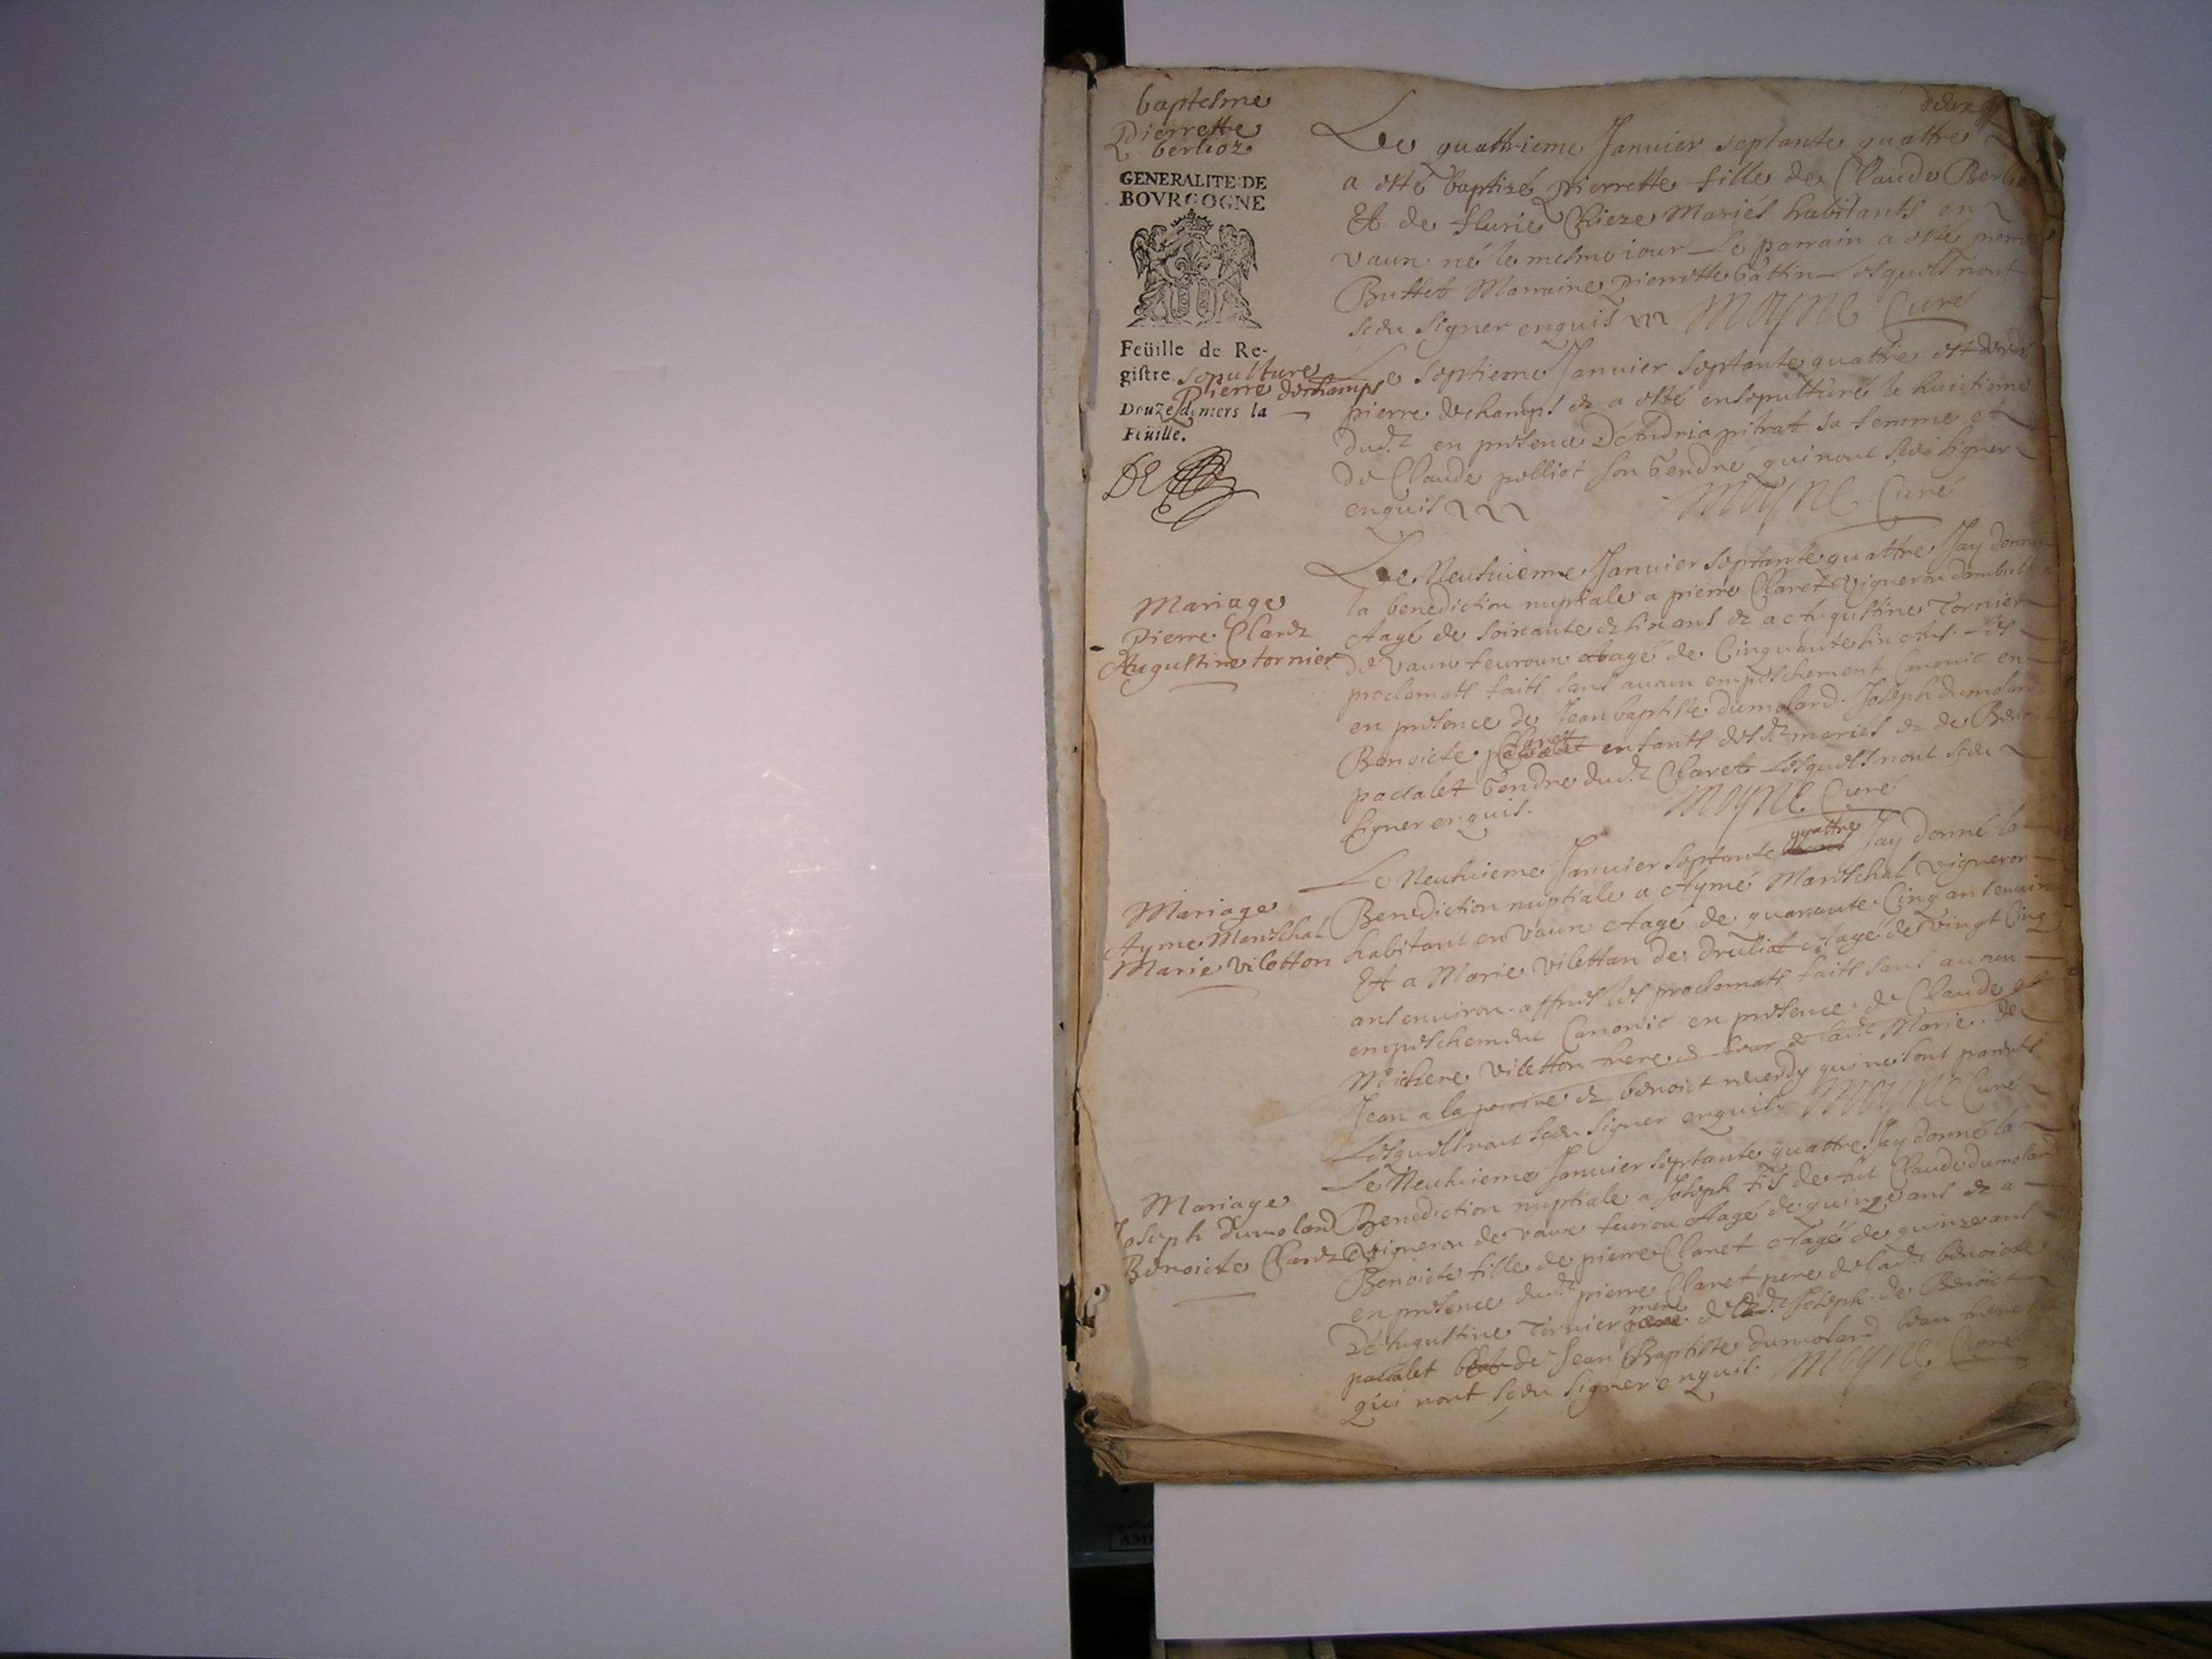 baptesme
Pierrette
berlioz
GENERALITE DE
BOVRGOGNE
Feüille de Re-
gistre
Douze deniers la
Feüille.
Le quattrieme Januier septante quattre
a esté baptizé pierrette fille de Claude
Et de flurie Mariés habitants en
vaux né le mesme iour Le parrain a esté
Buffet Marraine pierrette battin Lesquels nont
sceu signer enquis Moyne Curé
sepulture
Pierre dechamps
Le septieme Januier septante quattre est
pierre dechamps & a esté ensepulturé le huictieme
dud.t en presence D'Andria pitrat sa femme et
de Claude polliot son Gendre qui nont sceu signer
enquis Moyne Curé
Mariage
Pierre Claret
Augustine tornier
Le Neufuieme Januier septante quattre Jay donné
la benediction nuptiale a pierre Claret vigneron
Aagé de soixante & six ans & a Augustine Tornier
de vaux feuroux aagé de Cinquante six Ans. Les
proclamats faits sans aucun empeschement Canonic en
en presence de Jean baptiste dumolard. Joseph dumolard
Benoicte Claret enfants desd.t mariés & de
pacalet Gendre dud.t Claret Lesquels nont sceu
signer enquis. Moyne Curé
Mariage
Ayme Mareschal
Marie viletton
Le Neufuieme Januier septante quattre Jay donné la
Benediction nuptiale a Aymé Mareschal vigneron
habitant en vaux Aagé de quarante Cinq ans enuiron
Et a Marie viletton de druliat Aagé de vingt Cinq
ans enuiron apres les proclamats faits sans aucun
empeschement Canonic en presence de Claude et
viletton frere & soeur de lad.t Marie. de
Jean a la & benoict qui ne sont parents
Lesquels nont sceu signer enquis. Moyne Curé
Mariage
Joseph Dumolard
Benoicte Claret
Le Neufuieme Januier septante quattre Jay donné la
Benediction nuptiale a Joseph fils de fut Claude dumolard
vigneron de vaux feurou Aagé de quinze ans & a
Benoicte fille de pierre Claret Aagé de quinze ans
en presence dud.t pierre Claret pere de lad.t benoicte
D'Augustine Tornier mere dud.t Joseph. de Benoict
pacalet de Jean Baptiste dumolard beau frere
qui nont sceu signer enquis. Moyne Curé